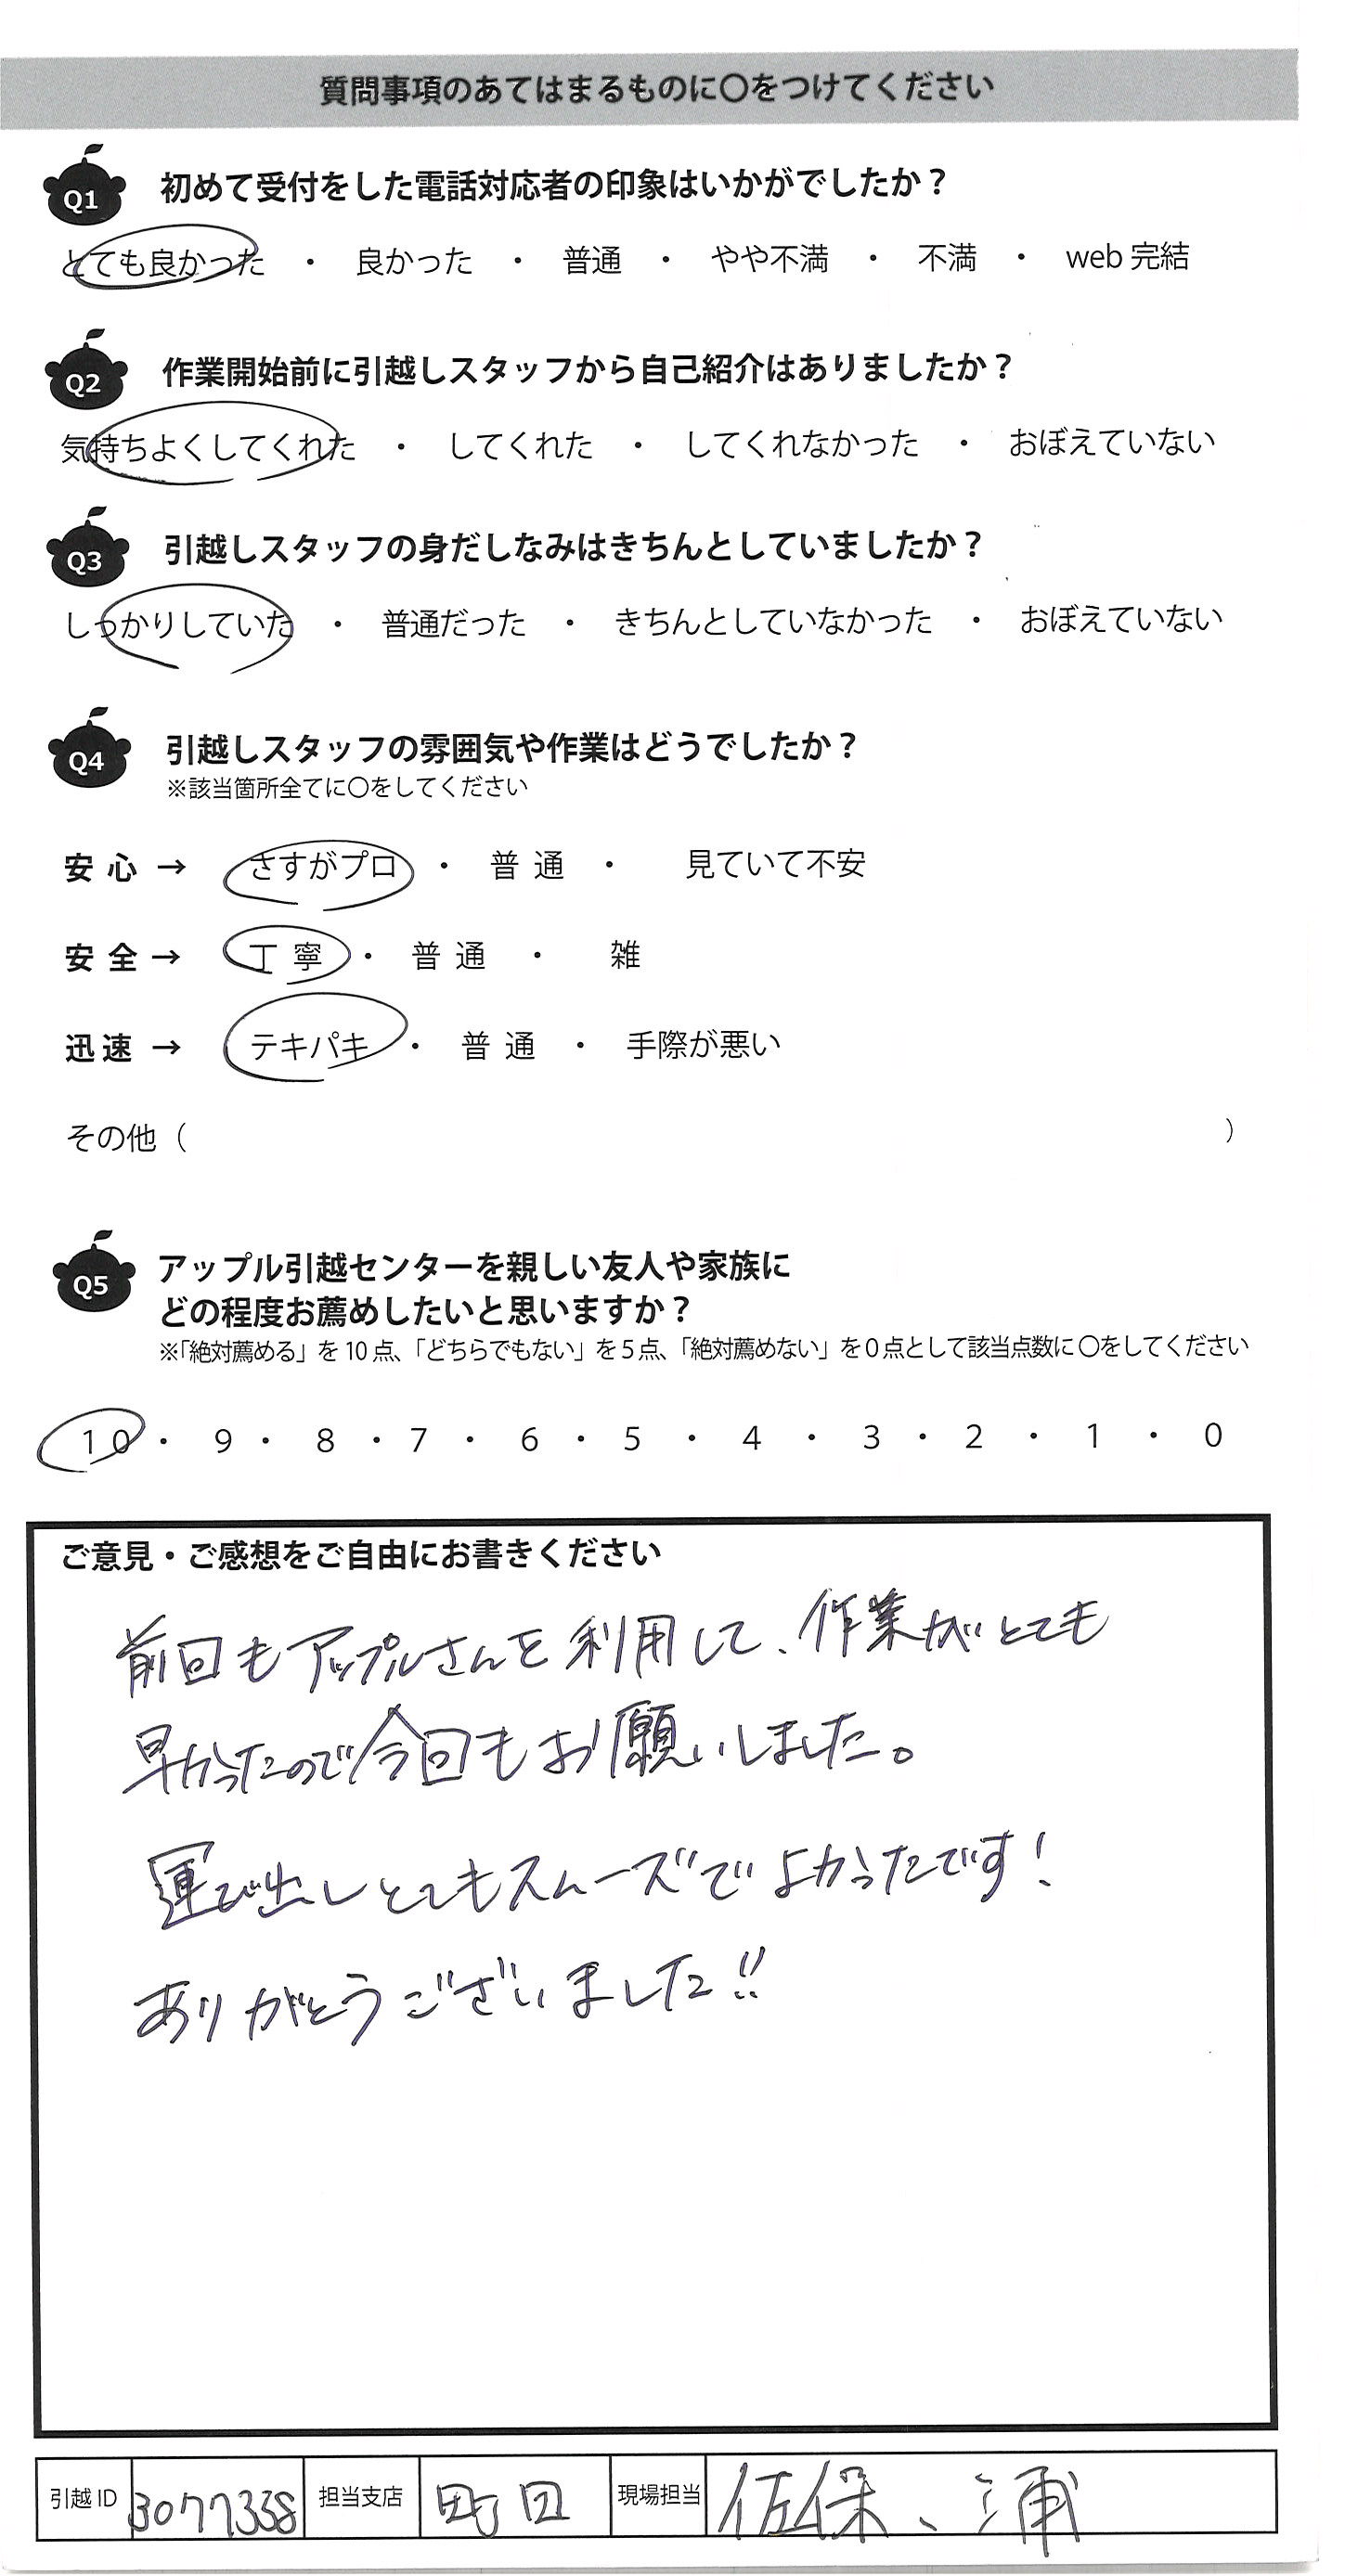 質問事項のあてはまるものに〇をつけてください
Q1 初めて受付をした電話対応者の印象はいかがでしたか？
とても良かった ・ 良かった ・ 普通 ・ やや不満 ・ 不満 ・ web 完結
Q2 作業開始前に引越しスタッフから自己紹介はありましたか？
気持ちよくしてくれた ・ してくれた ・ してくれなかった ・ おぼえていない
Q3 引越しスタッフの身だしなみはきちんとしていましたか？
しっかりしていた ・ 普通だった ・ きちんとしていなかった ・ おぼえていない
Q4 引越しスタッフの雰囲気や作業はどうでしたか？
※該当箇所全てに〇をしてください
安心 → さすがプロ ・ 普通 ・ 見ていて不安
安全 → 丁寧 ・ 普通 ・ 雑
迅速 → テキパキ ・ 普通 ・ 手際が悪い
その他（ ）
Q5 アップル引越センターを親しい友人や家族に
どの程度お薦めしたいと思いますか？
※「絶対薦める」を10点、「どちらでもない」を5点、「絶対薦めない」を0点として該当点数に〇をしてください
10 ・ 9 ・ 8 ・ 7 ・ 6 ・ 5 ・ 4 ・ 3 ・ 2 ・ 1 ・ 0
ご意見・ご感想をご自由にお書きください
前回もアップルさんを利用して、作業がとても
早かったので今回もお願いしました。
運び出しとてもスムーズでよかったです！
ありがとうございました!!
引越ID 3077338 担当支店 町田 現場担当 佐保、三浦